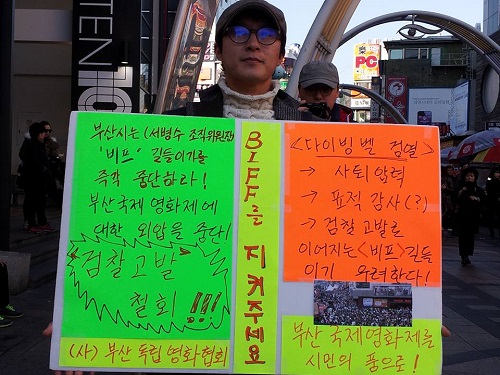 부산시는 (서병수 조직위원장)
'비프' 길들이기를
즉각 중단하라!
부산국제 영화제에
대한 외압을 중단!
검찰고발
철회!!!
(사) 부산 독립 영화협회
BIFF를 지켜주세요
<다이빙벨 검열>
→ 사퇴압력
→ 표적 감사(?)
→ 검찰 고발로
이어지는 <비프>길들
이기 우려한다!
부산 국제영화제를
시민의 품으로!
PC
TEN